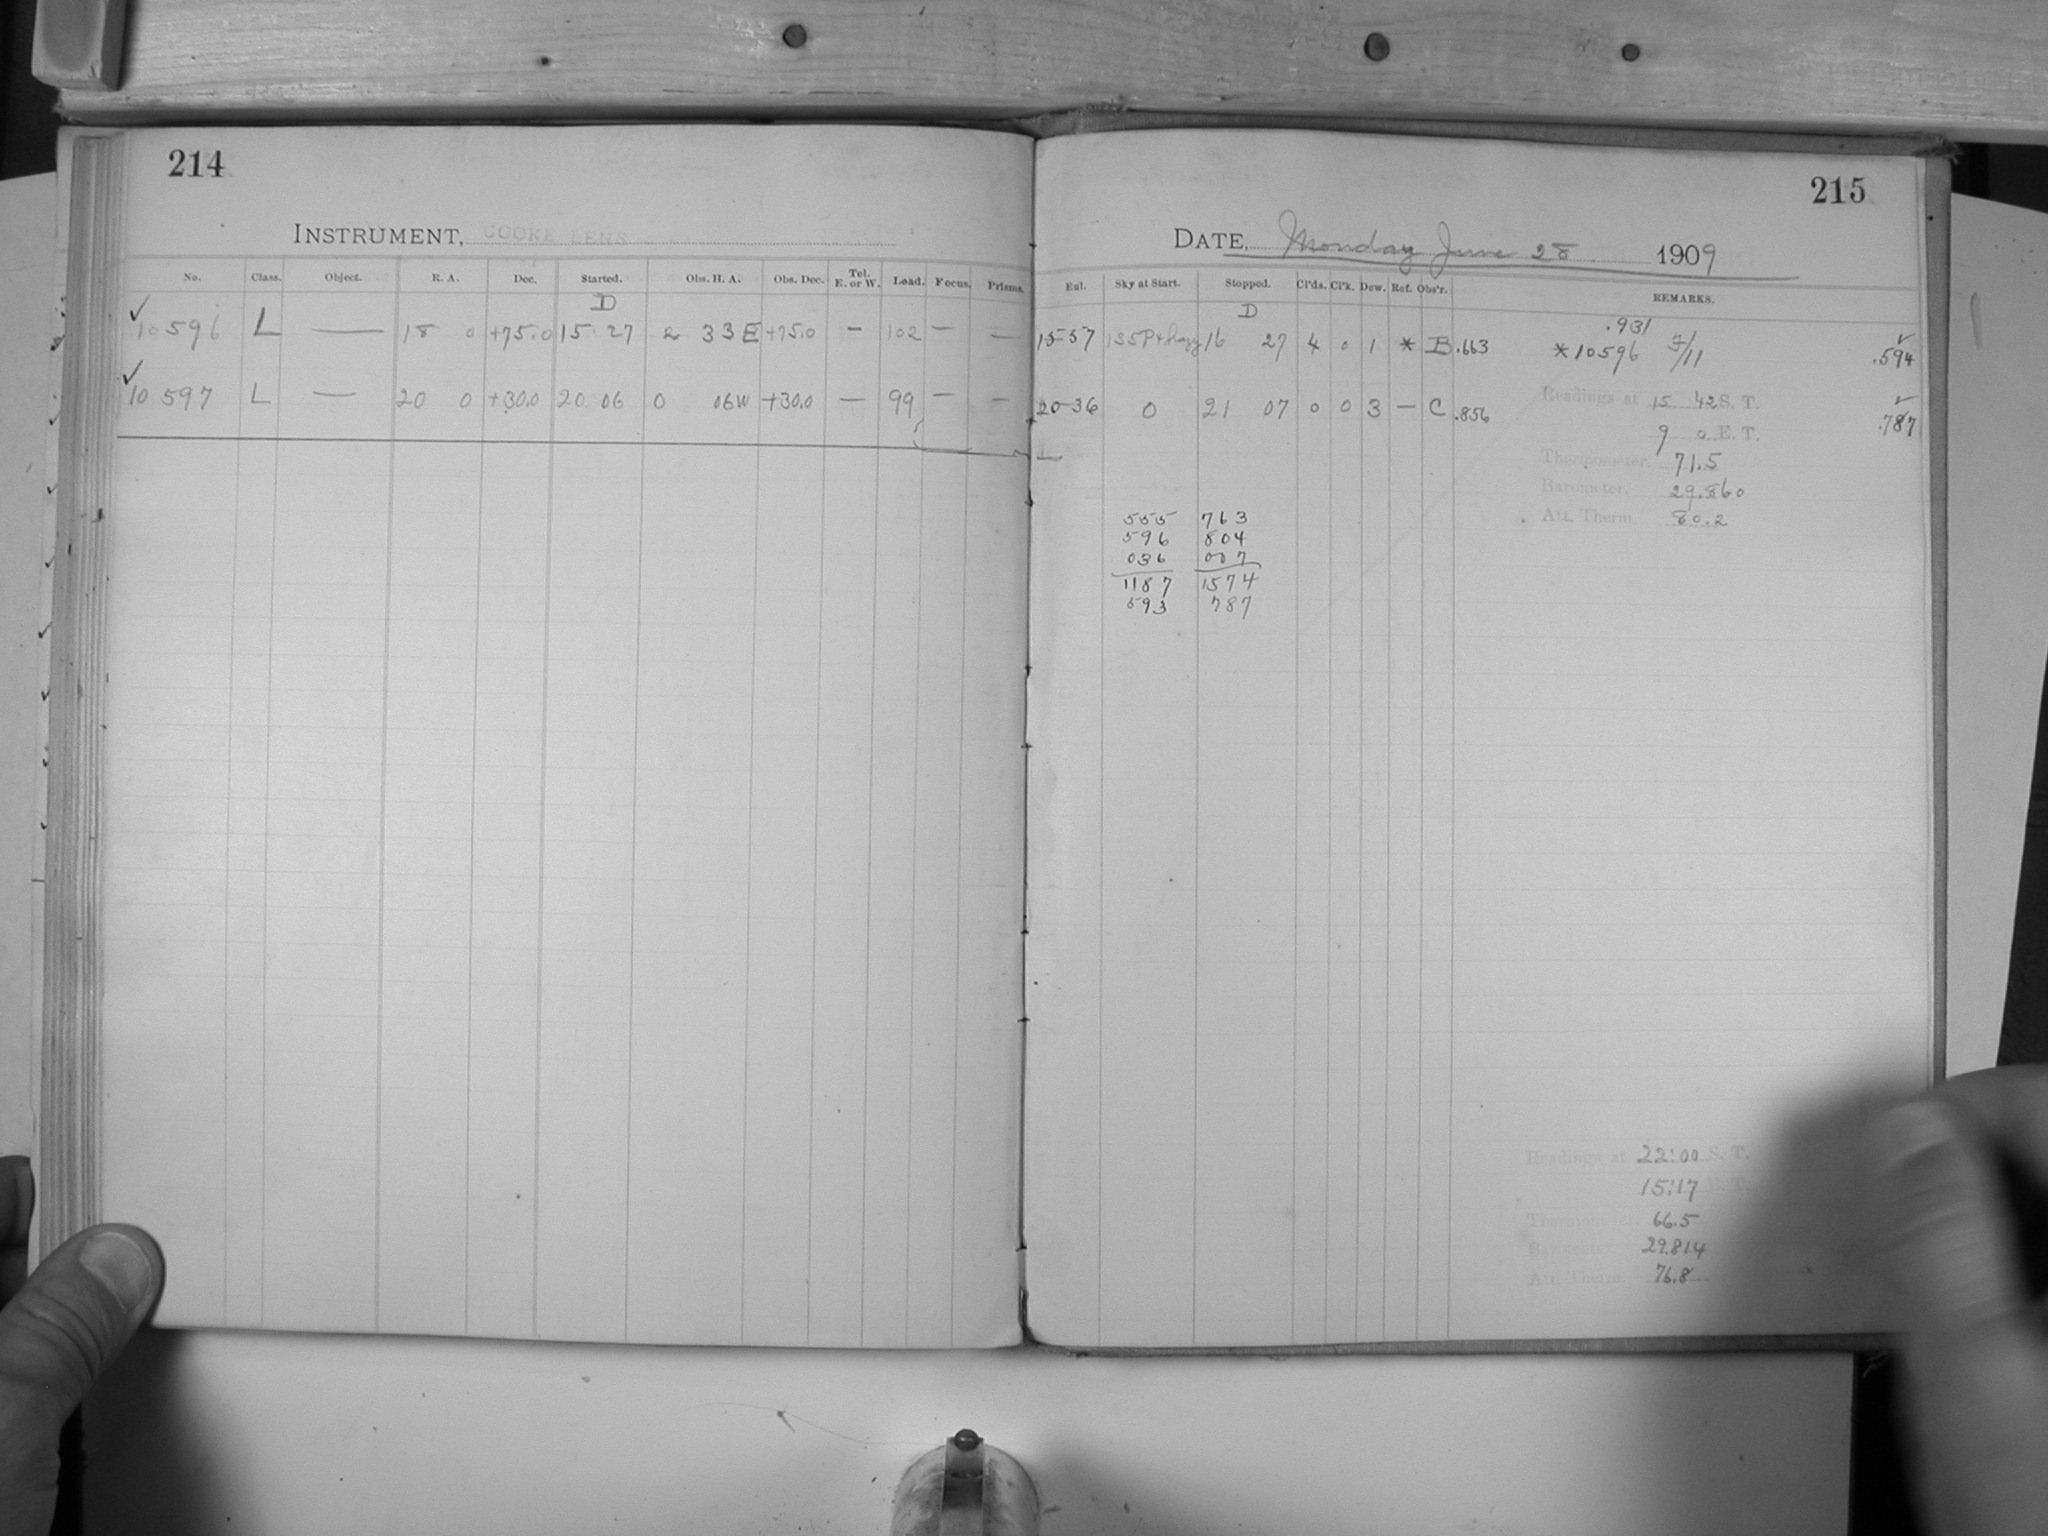 214
INSTRUMENT, COOKE LENS
No. Class. Object. R. A. Dec. Started. Obs. H. A. Obs. Dec. Tel. E. or W. Load. Focus. Prisms.
D
✓ 10596 L — 18 0 +75.0 15 27 2 33E +75.0 — 102 — —
✓ 10597 L — 20 0 +30.0 20 06 0 06W +30.0 — 99 — —
215
DATE, Monday June 28 1909
Ent. Sky at Start. Stopped. Cl'ds. Cl'k. Dew. Ref. Obs'r. REMARKS.
D
.931 ✓
15-57 1S5P+hazy 16 27 4 0 1 * B .663 *10596 F/11 .594
Readings at 15 42 S. T. ✓
20-36 0 21 07 0 0 3 — C .856 .787
9 0 E. T.
Thermometer. 71.5
Barometer. 29.860
Att. Therm. 80.2
555 763
596 804
036 007
1187 1574
593 787
Readings at 22:00 S. T.
15:17 E. T.
Thermometer 66.5
Barometer 29.814
Att. Therm. 76.8